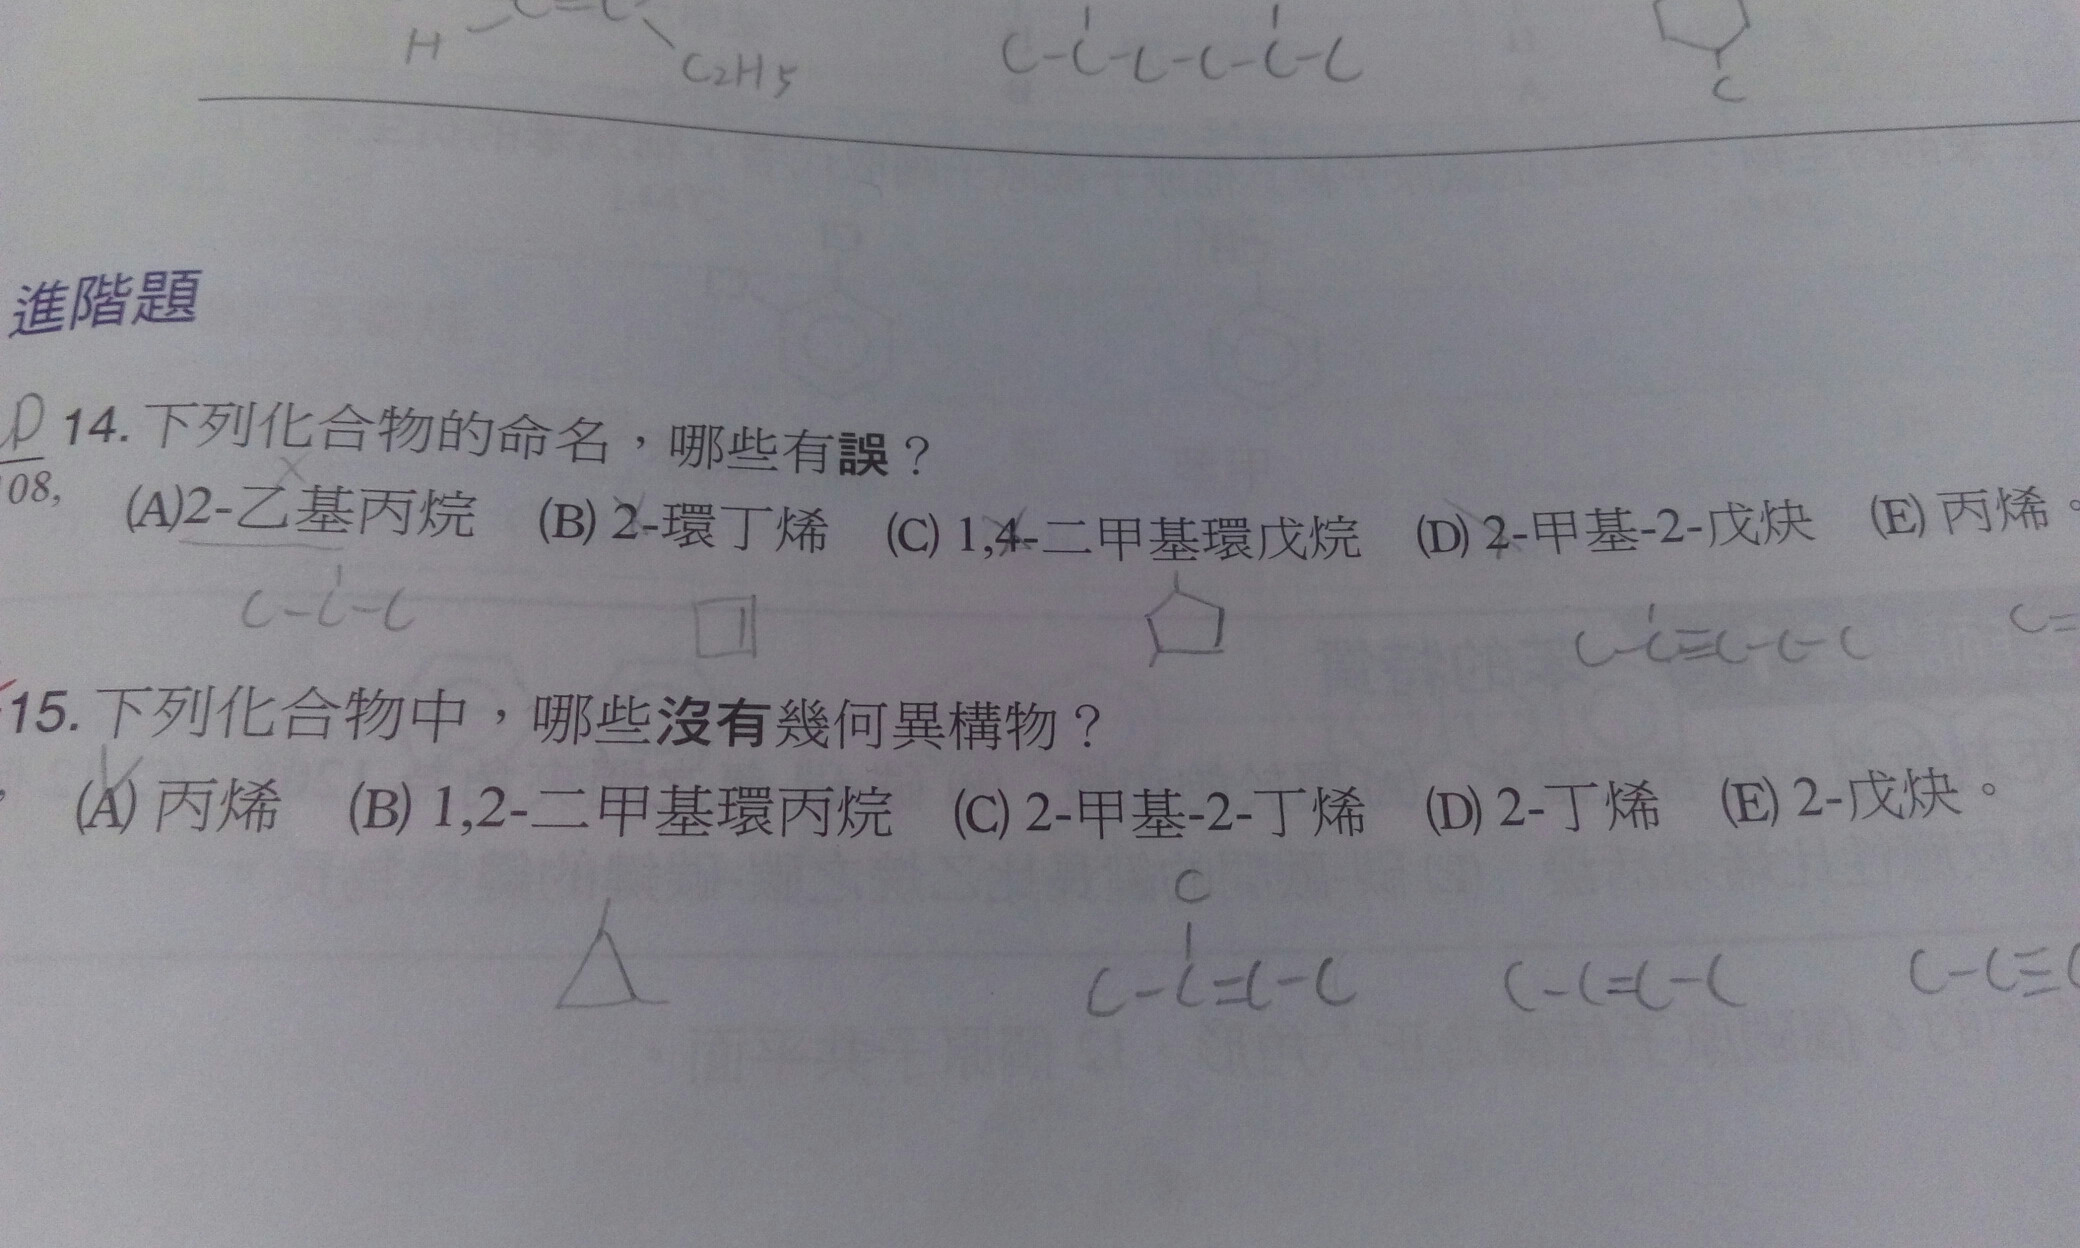 H
C=C
C2H5
C-C-C-C-C-C
C
進階題
14. 下列化合物的命名，哪些有誤？
08,
(A)2-乙基丙烷 (B) 2-環丁烯 (C) 1,4-二甲基環戊烷 (D) 2-甲基-2-戊炔 (E) 丙烯。
C-C-C
C-C≡C-C-C
C=
15. 下列化合物中，哪些沒有幾何異構物？
(A) 丙烯 (B) 1,2-二甲基環丙烷 (C) 2-甲基-2-丁烯 (D) 2-丁烯 (E) 2-戊炔。
C
C-C=C-C
C-C=C-C
C-C≡C